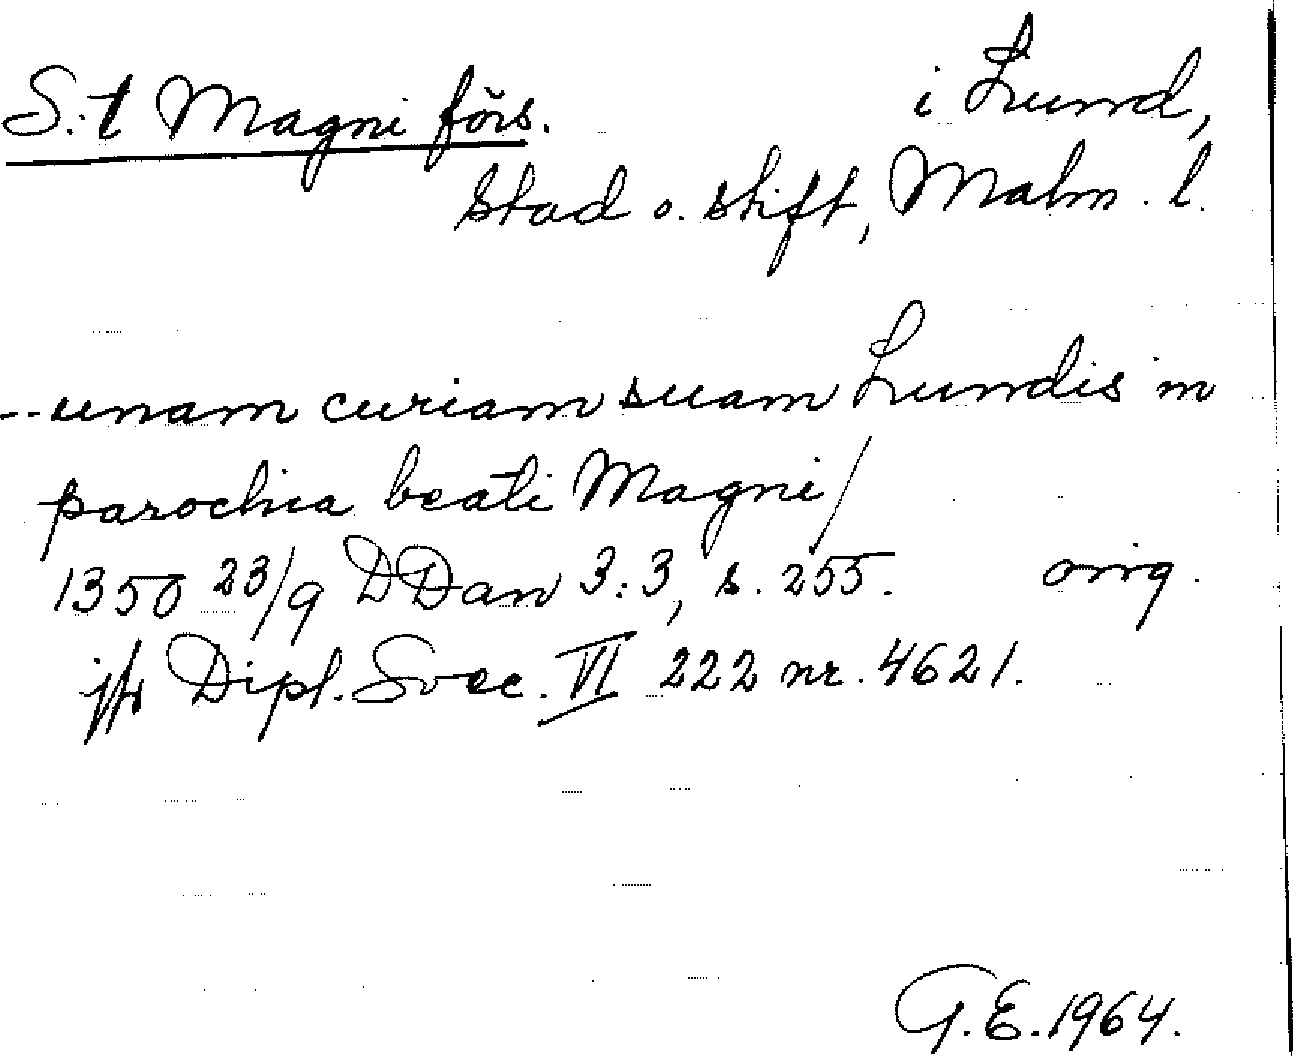 S:t Magni förs. i Lund,
stad o. stift, Malm. l.
-- unam curiam suam Lundis in
parochia beati Magni/
1350 23/9 DDan 3:3, s. 255. orig.
jfr Dipl. Svec. VI 222 nr. 4621.
G.E. 1964.